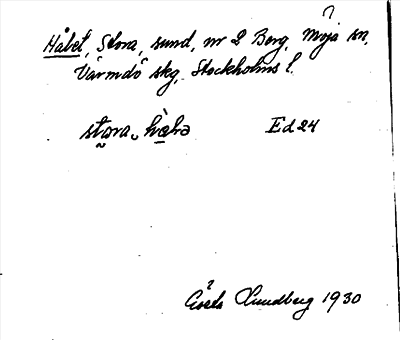 Hålet, Stora, sund, nr 2 Berg, Möja sn,
Värmdö skg, Stockholms l.
Ed 24
Lundberg 1930